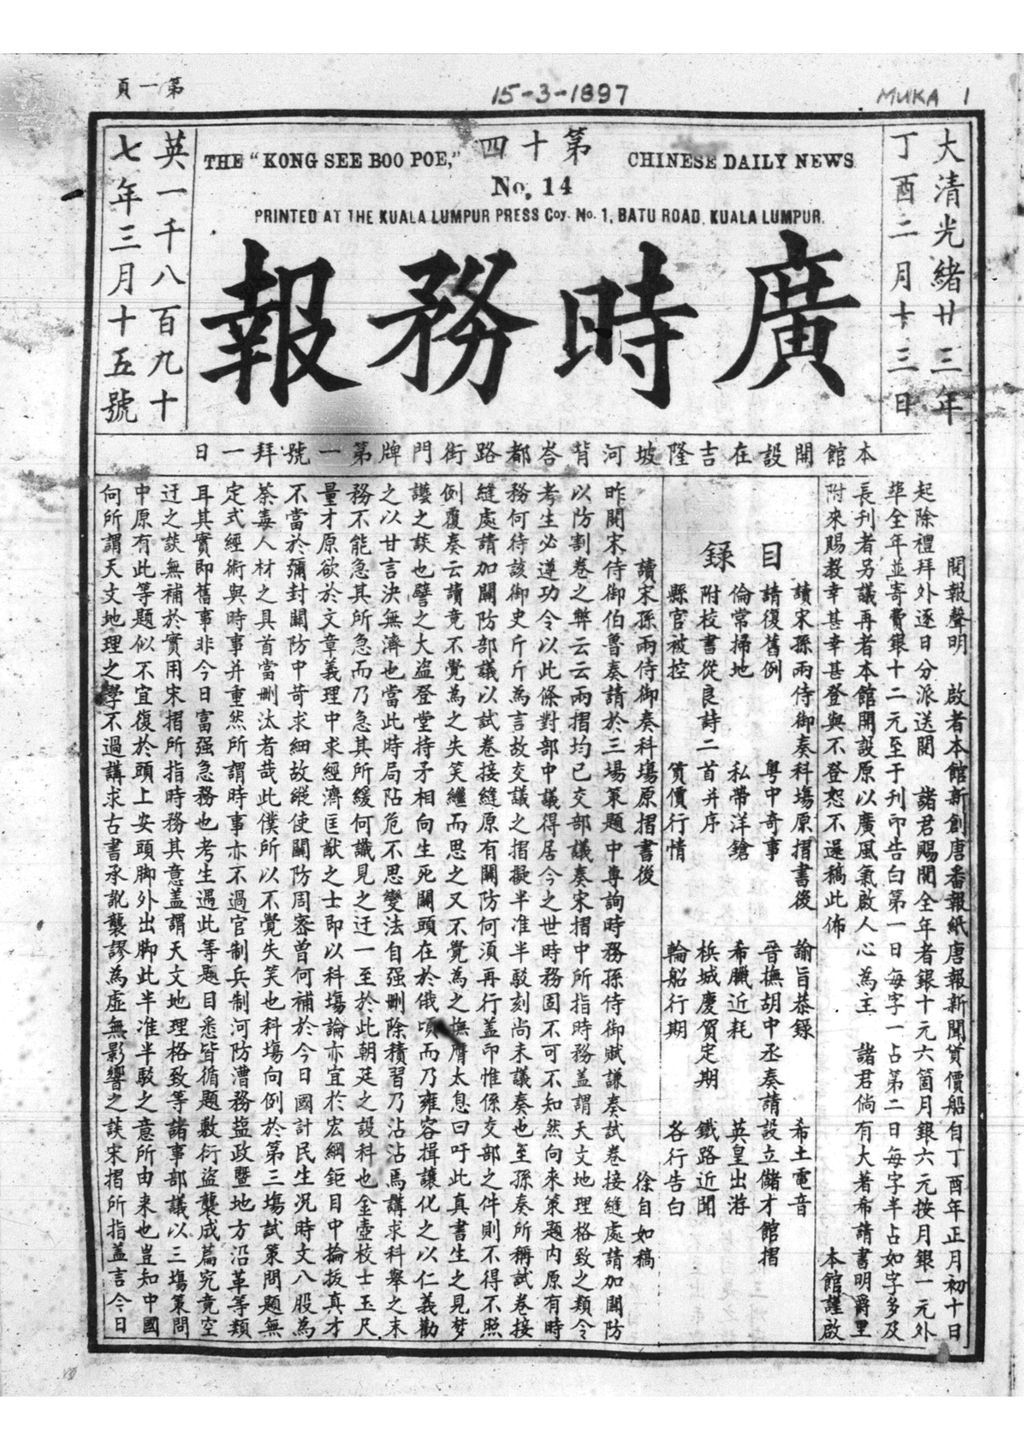 第一頁
15-3-1897
MUKA 1
大清光緒廿三年
丁酉二月十三日
第十四
THE "KONG SEE BOO POE," CHINESE DAILY NEWS
No. 14
PRINTED AT THE KUALA LUMPUR PRESS Coy. No. 1, BATU ROAD, KUALA LUMPUR.
廣時務報
英一千八百九十
七年三月十五號
本館開設在吉隆坡河背峇都路街門牌第一號拜一日
開報聲明 啟者本館新創唐番報紙唐報新聞貨價船自丁酉年正月初十日
起除禮拜外逐日分派送閱 諸君賜閱全年者銀十元六箇月銀六元按月銀一元外
埠全年並寄費銀十二元至于刊印告白第一日每字一占第二日每字半占如字多及
長刊者另議再者本館開設原以廣風氣啟人心為主 諸君倘有大著希請書明爵里
附來賜教幸甚幸甚登與不登恕不還稿此佈 本館謹啟
目錄
讀宋孫兩侍御奏科塲原摺書後 諭旨恭錄 希土電音
請復舊例 粵中奇事 晉撫胡中丞奏請設立儲才館摺
倫常掃地 私帶洋鎗 希臘近耗 英皇出游
附校書從良詩二首并序 梹城慶賀定期 鐵路近聞
縣官被控 貨價行情 輪船行期 各行告白
讀宋孫兩侍御奏科塲原摺書後 徐自如稿
昨閱宋侍御伯魯奏請於三場策題中專詢時務孫侍御賦謙奏試卷接縫處請加關防
以防割卷之弊云云兩摺均已交部議奏宋摺中所指時務蓋謂天文地理格致之類令
考生必遵功令以此條對部中議得居今之世時務固不可不知然向來策題内原有時
務何待該御史斤斤為言故交議之摺擬半准半駁刻尚未議奏也至孫奏所稱試卷接
縫處請加關防部議以試卷接縫原有關防何須再行蓋印惟係交部之件則不得不照
例覆奏云讀竟不覺為之失笑繼而思之又不覺為之撫膺太息曰吁此真書生之見梦
讓之談也譬之大盜登堂持矛相向生死關頭在於俄頃而乃雍容揖讓化之以仁義勸
之以甘言決無濟也當此時局阽危不思變法自强刪除積習乃沾沾焉講求科舉之末
務不能急其所急而乃急其所緩何識見之迂一至於此朝廷之設科也金壺校士玉尺
量才原欲於文章義理中求經濟匡猷之士即以科塲論亦宜於宏綱鉅目中掄拔真才
不當於彌封關防中苛求細故縱使關防周密曾何補於今日國計民生况時文八股為
荼毒人材之具首當刪汰者哉此僕所以不覺失笑也科塲向例於第三塲試策問題無
定式經術與時事并重然所謂時事亦不過官制兵制河防漕務塩政暨地方沿革等類
耳其實即舊事非今日富强急務也考生遇此等題目悉皆循題敷衍盜襲成篇究竟空
迂之談無補於實用宋摺所指時務其意蓋謂天文地理格致等諸事部議以三塲策問
中原有此等題似不宜復於頭上安頭脚外出脚此半准半駁之意所由来也豈知中國
何所謂天文地理之學不過講求古書承訛襲謬為虛無影響之談宋摺所指蓋言今日